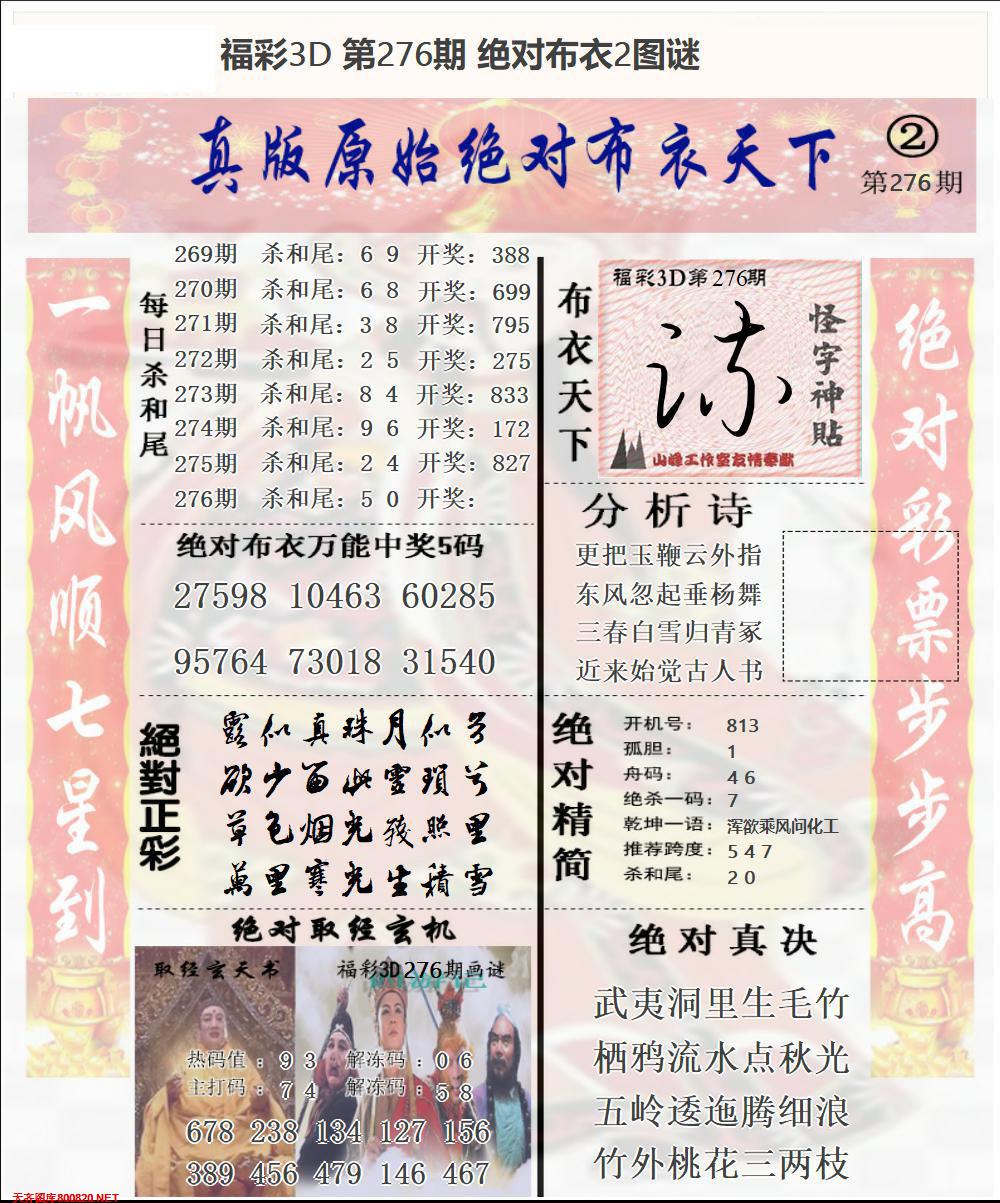 福彩3D 第276期 绝对布衣2图谜
真版原始绝对布衣天下
②
第276期
一帆风顺七星到
每日杀和尾
269期 杀和尾：6 9 开奖：388
270期 杀和尾：6 8 开奖：699
271期 杀和尾：3 8 开奖：795
272期 杀和尾：2 5 开奖：275
273期 杀和尾：8 4 开奖：833
274期 杀和尾：9 6 开奖：172
275期 杀和尾：2 4 开奖：827
276期 杀和尾：5 0 开奖：
绝对布衣万能中奖5码
27598 10463 60285
95764 73018 31540
絕對正彩
露似真珠月似弓
欲少留此靈瑣兮
草色烟光残照里
萬里寒光生積雪
绝对取经玄机
取经玄天书
福彩3D276期画谜
热码值：9 3 解冻码：0 6
主打码：7 4 解冻码：5 8
678 238 134 127 156
389 456 479 146 467
布衣天下
福彩3D第276期
怪字神貼
山峰工作室友情奉献
分析诗
更把玉鞭云外指
东风忽起垂杨舞
三春白雪归青冢
近来始觉古人书
绝对精简
开机号： 813
孤胆： 1
舟码： 4 6
绝杀一码：7
乾坤一语：浑欲乘风问化工
推荐跨度：5 4 7
杀和尾： 2 0
绝对真决
武夷洞里生毛竹
栖鸦流水点秋光
五岭逶迤腾细浪
竹外桃花三两枝
绝对彩票步步高
天齐图库800820.NET